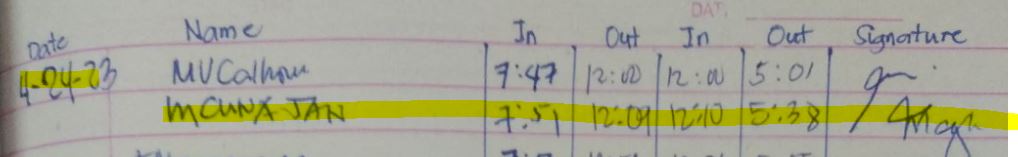 DAT
Date Name In Out In Out Signature
4-24-23 MVCalhoun 7:47 12:00 12:00 5:01
JAN 7:51 12:09 12:10 5:38